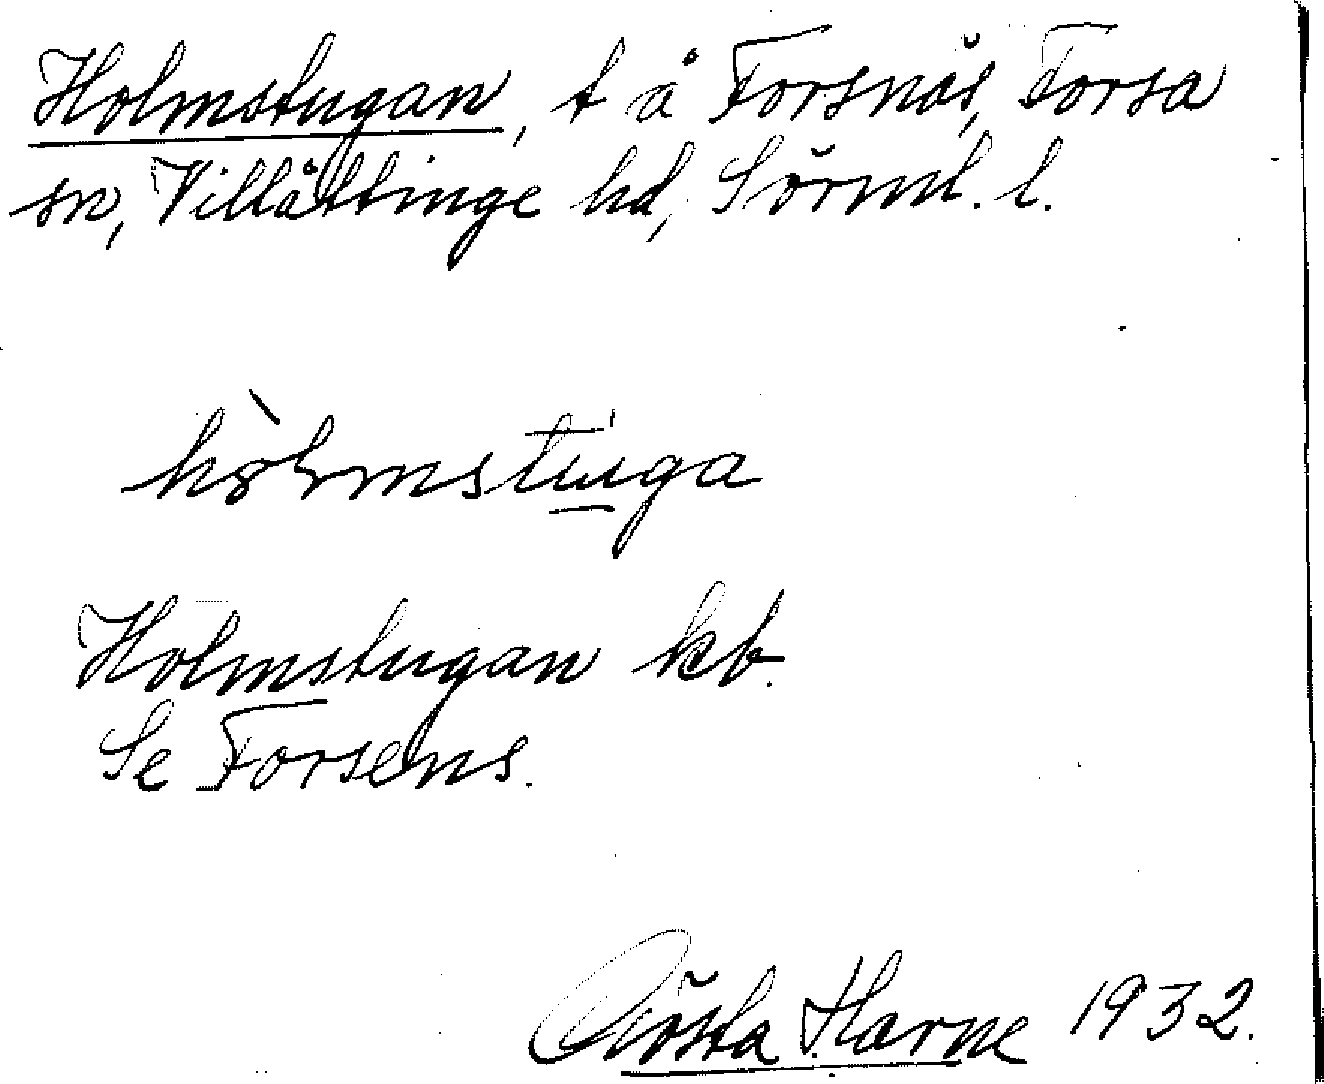 Holmstugan, t å Forsnäs, Forsa
sn, Villåttinge hd, Sörml. l.
hòlmstuga
Holmstugan kb.
Se Forsens.
Gösta Harne 1932.